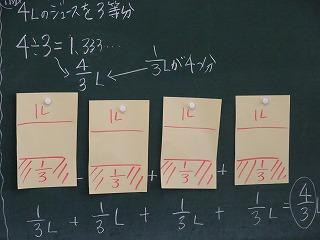 4Lのジュースを3等分
4÷3=1.333…
4/3 L ← 1/3 Lが4つ分
1L 1L 1L 1L
1/3 + 1/3 + 1/3 + 1/3
1/3 L + 1/3 L + 1/3 L + 1/3 L = 4/3 L